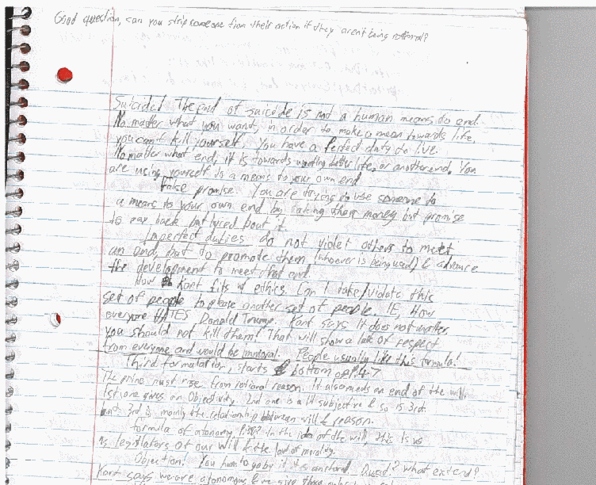 Good question, can you strip someone from their action if they aren't being rational?
Suicide! The end of suicide is not a human means to end.
No matter what you want, in order to make a mean towards life,
you can't kill yourself. You have a Perfect duty to live.
No matter what end, it is towards wanting better life, or another end. You
are using yourself as a means to your own end
False promise. You are trying to use someone to
a means to your own end by taking their money but promise
to pay back but lyred bout it.
Imperfect duties do not violet others to meet
an end, but to promote them (whoever is being used) & advance
the development to meet that end
How Kant fits w ethics. Can I take/violate this
set of people to please another set of people. IE, How
everyone HATES Donald Trump. Kant says it does not matter
you should not kill them! That will show a lack of respect
from everyone and would be immoral. People usually like this formula!
Third formulation, starts bottom of P.47
The princ must rise from rational reason. It also needs an end of the will
1st one gives an Objectivity. 2nd one is a lil subjective & so is 3rd
3rd is moving the relationship between will & reason.
formula of atonomy idea of the will. This is us
as legislators of our will & the law of moving.
Objection! You have to go by it if its what extend?
Kant says we are atonomous & we give